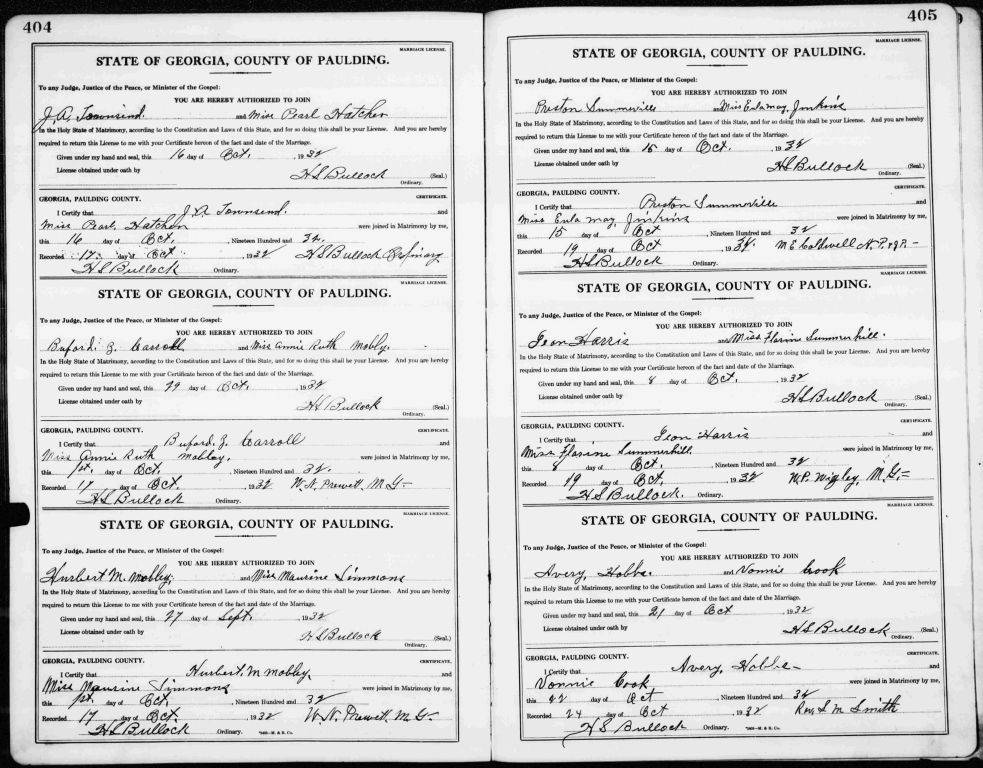 404
MARRIAGE LICENSE.
STATE OF GEORGIA, COUNTY OF PAULDING.
To any Judge, Justice of the Peace, or Minister of the Gospel:
YOU ARE HEREBY AUTHORIZED TO JOIN
J. A. Townsend and Miss Pearl Hatcher
in the Holy State of Matrimony, according to the Constitution and Laws of this State, and for so doing this shall be your License. And you are hereby
required to return this License to me with your Certificate hereon of the fact and date of the Marriage.
Given under my hand and seal, this 16 day of Oct. , 1932
License obtained under oath by
H S Bullock (Seal.)
Ordinary.
GEORGIA, PAULDING COUNTY. CERTIFICATE.
I Certify that J. A Townsend. and
Miss Pearl Hatcher were joined in Matrimony by me,
this 16 day of Oct. , Nineteen Hundred and 32.
Recorded 17 day of Oct , 1932 H S Bullock Ordinary
H S Bullock Ordinary.
MARRIAGE LICENSE.
STATE OF GEORGIA, COUNTY OF PAULDING.
To any Judge, Justice of the Peace, or Minister of the Gospel:
YOU ARE HEREBY AUTHORIZED TO JOIN
Buford Z. Carroll and Miss Annie Ruth Mobly.
in the Holy State of Matrimony, according to the Constitution and Laws of this State, and for so doing this shall be your License. And you are hereby
required to return this License to me with your Certificate hereon of the fact and date of the Marriage.
Given under my hand and seal, this day of Oct. , 1932
License obtained under oath by
H S Bullock (Seal.)
Ordinary.
GEORGIA, PAULDING COUNTY. CERTIFICATE.
I Certify that Buford. Z. Carroll and
Miss Annie Ruth Mobley. were joined in Matrimony by me,
this 1st. day of Oct. , Nineteen Hundred and 32.
Recorded 17 day of Oct. , 1932 W. N. Prewett M G-
H S Bullock Ordinary.
MARRIAGE LICENSE.
STATE OF GEORGIA, COUNTY OF PAULDING.
To any Judge, Justice of the Peace, or Minister of the Gospel:
YOU ARE HEREBY AUTHORIZED TO JOIN
Hurbert M. Mobley. and Miss Maurine Simmons
in the Holy State of Matrimony, according to the Constitution and Laws of this State, and for so doing this shall be your License. And you are hereby
required to return this License to me with your Certificate hereon of the fact and date of the Marriage.
Given under my hand and seal, this 27 day of Sept. , 1932
License obtained under oath by
H S Bullock (Seal.)
Ordinary.
GEORGIA, PAULDING COUNTY. CERTIFICATE.
I Certify that Hurbert. M Mobley and
Miss Maurine Simmons were joined in Matrimony by me,
this 1st. day of Oct. , Nineteen Hundred and 32
Recorded 17 day of Oct. , 1932 W. N. Prewett M. G-
H S Bullock Ordinary.
405
MARRIAGE LICENSE.
STATE OF GEORGIA, COUNTY OF PAULDING.
To any Judge, Justice of the Peace, or Minister of the Gospel:
YOU ARE HEREBY AUTHORIZED TO JOIN
Preston Summerville and Miss Eula May, Jinkins
in the Holy State of Matrimony, according to the Constitution and Laws of this State, and for so doing this shall be your License. And you are hereby
required to return this License to me with your Certificate hereon of the fact and date of the Marriage.
Given under my hand and seal, this 15 day of Oct. , 1932
License obtained under oath by
H S Bullock (Seal.)
Ordinary.
GEORGIA, PAULDING COUNTY. CERTIFICATE.
I Certify that Preston Summerville and
Miss Eula May, Jinkins were joined in Matrimony by me,
this 15 day of Oct , Nineteen Hundred and 32
Recorded 19 day of Oct , 1932. M E Caldwell N. P. & J. P. -
H S Bullock Ordinary.
MARRIAGE LICENSE.
STATE OF GEORGIA, COUNTY OF PAULDING.
To any Judge, Justice of the Peace, or Minister of the Gospel:
YOU ARE HEREBY AUTHORIZED TO JOIN
Leon Harris and Miss Florine Summerhill.
in the Holy State of Matrimony, according to the Constitution and Laws of this State, and for so doing this shall be your License. And you are hereby
required to return this License to me with your Certificate hereon of the fact and date of the Marriage.
Given under my hand and seal, this 8 day of Oct. , 1932
License obtained under oath by
H S Bullock (Seal.)
Ordinary.
GEORGIA, PAULDING COUNTY. CERTIFICATE.
I Certify that Leon Harris and
Miss Florine Summerhill. were joined in Matrimony by me,
this 8 day of Oct. , Nineteen Hundred and 32
Recorded 19 day of Oct. , 1932 W. P. Wigley, M. G. -
H S Bullock. Ordinary.
MARRIAGE LICENSE.
STATE OF GEORGIA, COUNTY OF PAULDING.
To any Judge, Justice of the Peace, or Minister of the Gospel:
YOU ARE HEREBY AUTHORIZED TO JOIN
Avery, Hobbs. and Vonnie Cook
in the Holy State of Matrimony, according to the Constitution and Laws of this State, and for so doing this shall be your License. And you are hereby
required to return this License to me with your Certificate hereon of the fact and date of the Marriage.
Given under my hand and seal, this 21 day of Oct , 1932
License obtained under oath by
H S Bullock (Seal.)
Ordinary.
GEORGIA, PAULDING COUNTY. CERTIFICATE.
I Certify that Avery, Hobbs- and
Vonnie Cook were joined in Matrimony by me,
this 22 day of Oct , Nineteen Hundred and 32
Recorded 24 day of Oct , 1932 Rev. S. M. Smith
H S Bullock Ordinary.